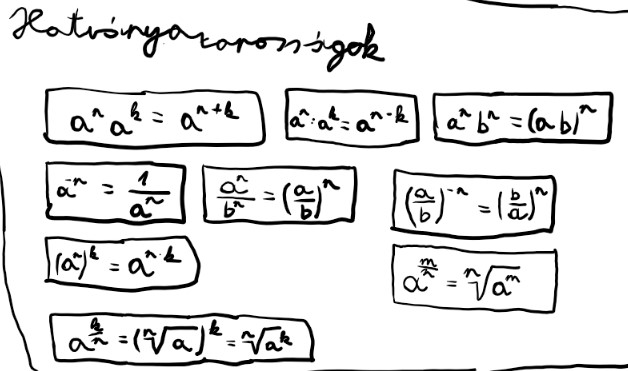 Hatványazonosságok
aⁿ aᵏ = aⁿ⁺ᵏ   aⁿ : aᵏ = aⁿ⁻ᵏ   aⁿ bⁿ = (ab)ⁿ
a⁻ⁿ = 1/aⁿ   aⁿ/bⁿ = (a/b)ⁿ   (a/b)⁻ⁿ = (b/a)ⁿ
(aⁿ)ᵏ = aⁿ·ᵏ   a^(m/n) = ⁿ√(aᵐ)
a^(k/n) = (ⁿ√a)ᵏ = ⁿ√(aᵏ)